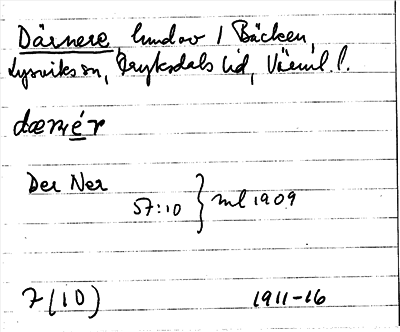 Därnere, hmdov 1 Bäcken,
Lysviks sn, Fryksdals hd, Värml. l.
dærnér
Der Ner
57:10 } ml 1909
7(10) 1911-16